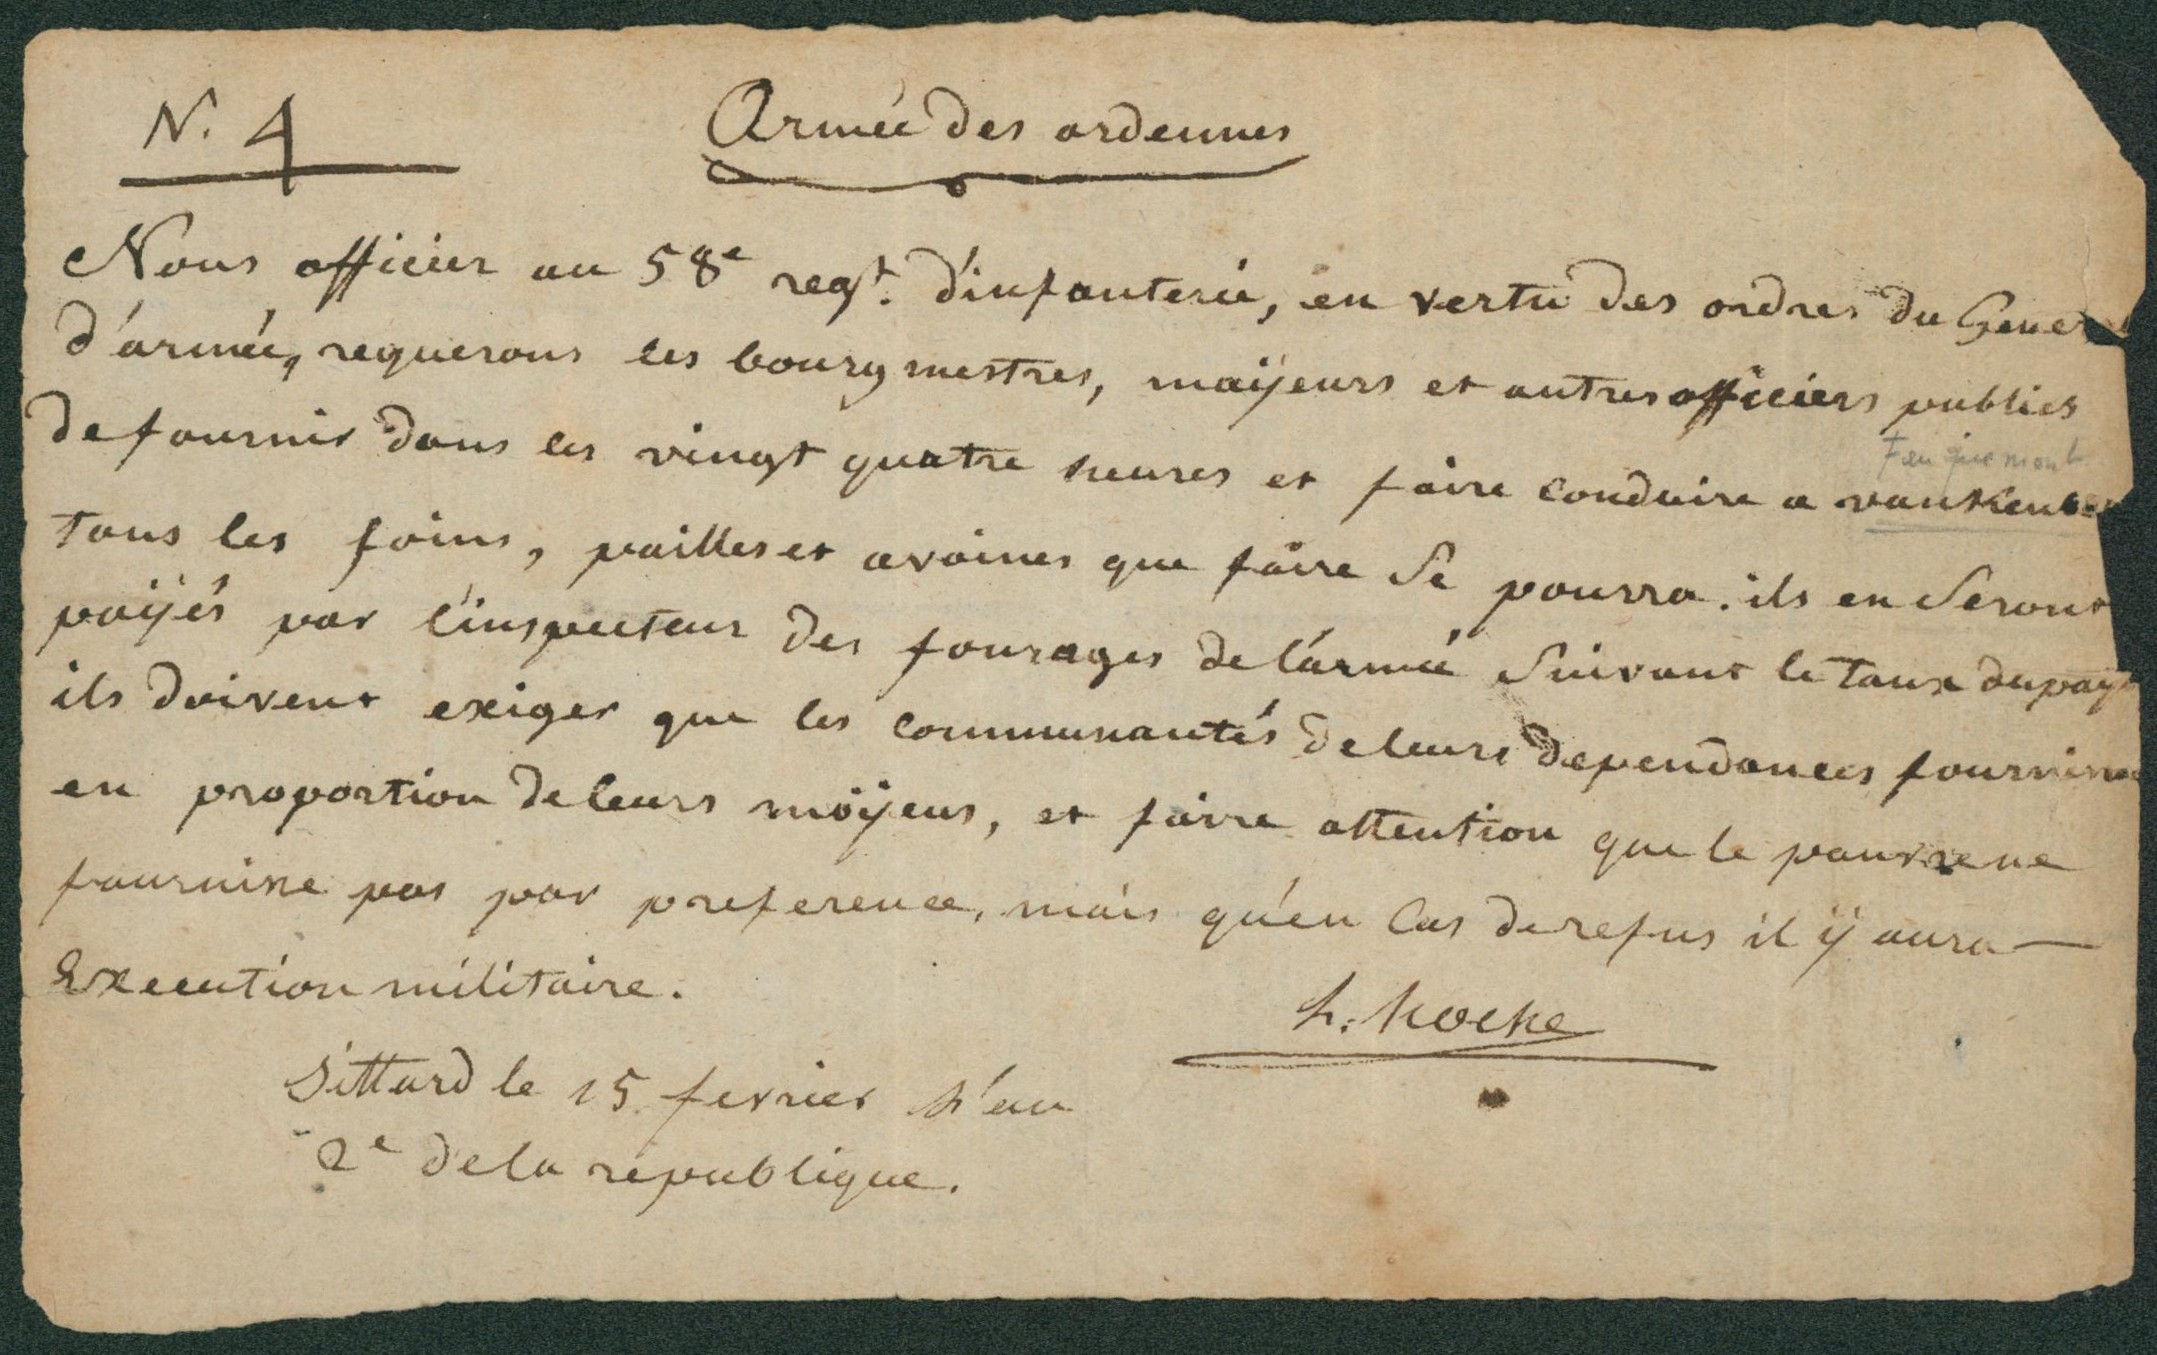 N. 4
Armée des ardennes
Nous officier au 58e regt. d'infanterie, en vertu des ordres du Gener
d'armée, requerons les bourgmestres, maÿeurs et autres officiers publics
Fauquemont
de fournir dans les vingt quatre heures et faire conduire a
tous les foins, pailles et avoines que faire se pourra. ils en seront
païjés par l'inspecteur des fourages de l'armée suivant le taux du pays
ils doivent exiger que les communautés de leurs dependances
en proportion de leurs moÿens, et faire attention que le pauvre ne
fournisse pas par preference, mais qu'en cas de refus il ÿ aura —
Execution militaire.
h: Kocke
Sittard le 15 fevrier l'an
2e de la republique.